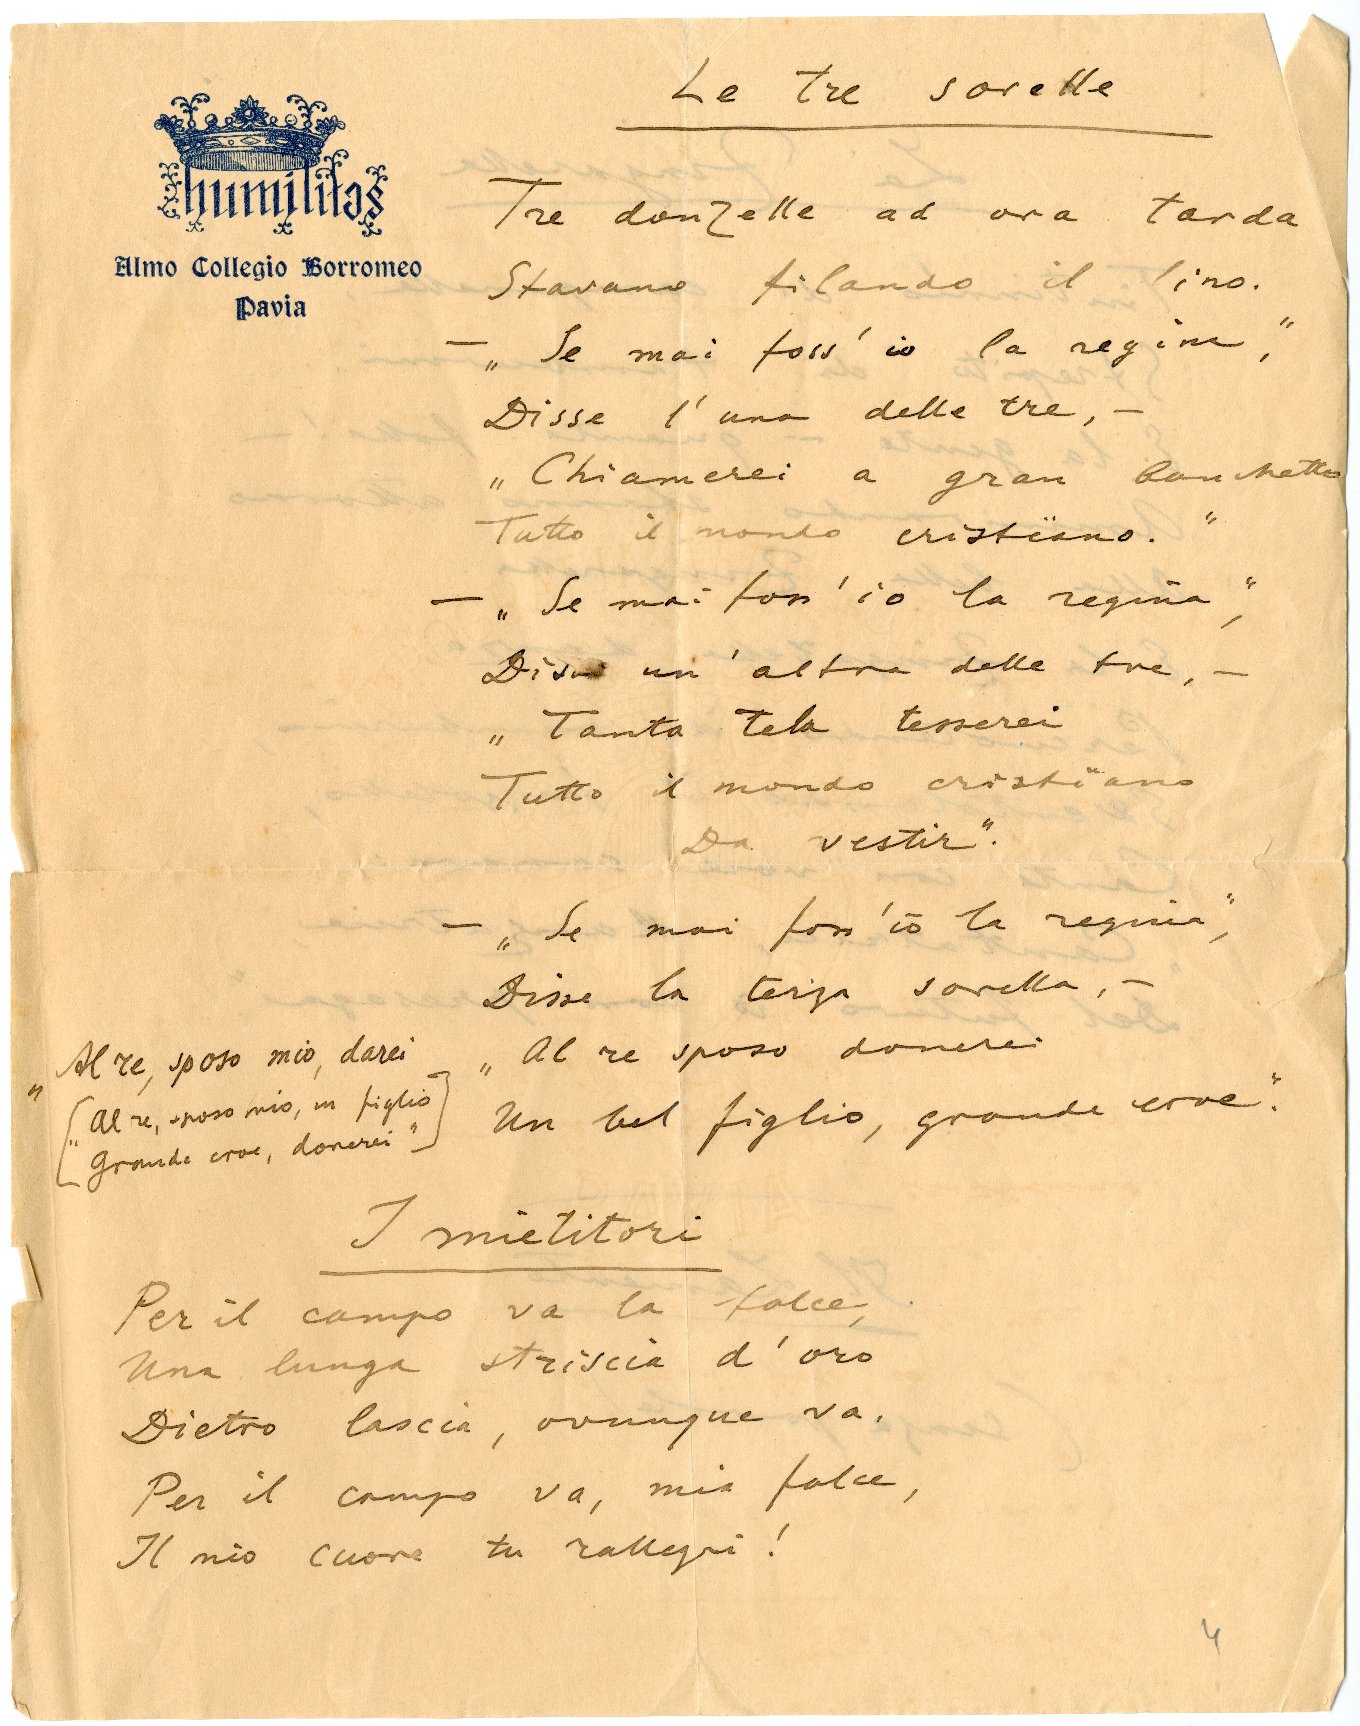 humilitas
Almo Collegio Borromeo
Pavia
Le tre sorelle
Tre donzelle ad ora tarda
Stavano filando il lino.
— „Se mai foss'io la regina“,
Disse l'una delle tre, —
„Chiamerei a gran banchetto
Tutto il mondo cristïano.“
— „Se mai foss'io la regina“,
Disse un'altra delle tre, —
„Tanta tela tesserei
Tutto il mondo cristïano
Da vestir“.
— „Se mai foss'io la regina“,
Disse la terza sorella, —
„Al re sposo donerei
Un bel figlio, grande eroe“.
„Al re, sposo mio, darei
[„Al re, sposo mio, un figlio
Grande eroe, donerei“]
I mietitori
Per il campo va la falce,
Una lunga striscia d'oro
Dietro lascia, ovunque va.
Per il campo va, mia falce,
Il mio cuore tu rallegri!
4